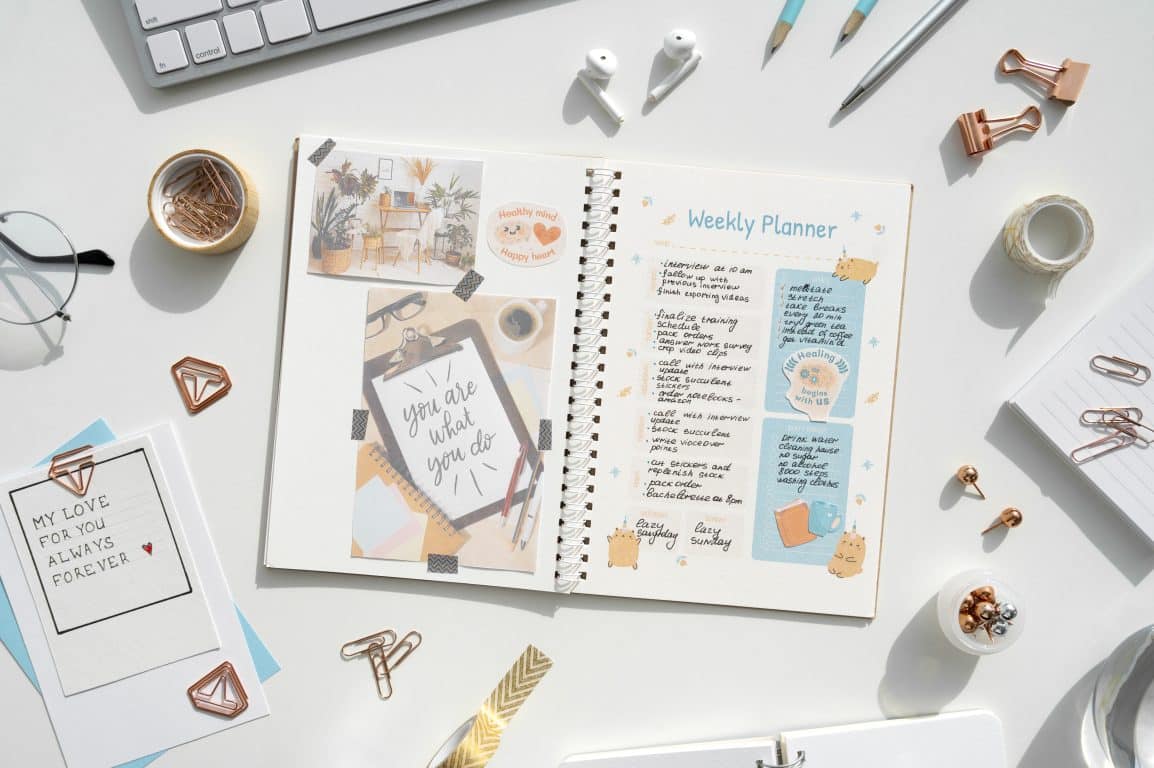 shift
fn
control
Healthy mind
Happy heart
you are
what
you do
Weekly Planner
• interview at 10 am
• follow up with
previous interview
finish exporting videos
• finalize training
schedule
• pack orders
• answer work survey
crop video clips
• call with interview
update
• stock succulent
stickers
• order notebooks -
amazon
• call with interview
update
• stock succulent
• write voiceover
points
• cut stickers and
replenish stock
• pack order
• bachelorette at 8pm
lazy
saturday
lazy
sunday
meditate
stretch
take breaks
every 20 min
try green tea
instead of coffee
get vitamin d
Healing
begins
with us
DRINK WATER
cleaning house
no sugar
no alcohol
8000 steps
washing clothes
MY LOVE
FOR YOU
ALWAYS
FOREVER